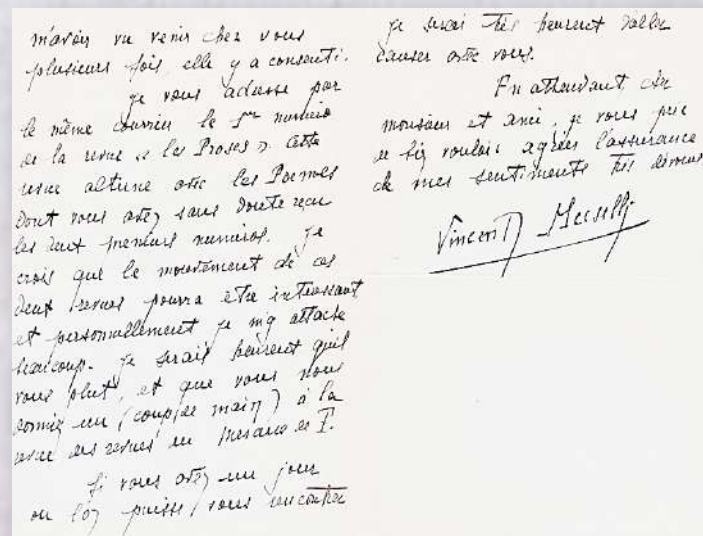 m'avoir vu venir chez vous
plusieurs fois, elle y a consenti.
Je vous adresse par
le même courrier le 1er numéro
de la revue « les Proses » cette
revue alterne avec les Poèmes
dont vous avez sans doute reçu
les deux premiers numéros. Je
crois que le mouvement de ces
deux revues pourra être intéressant
et personnellement je m'y attache
beaucoup. Je serais heureux qu'il
vous plut, et que vous nous
donniez un (coup de main) à la
revue des revues du Mercure de F.
Si vous avez un jour
où l'on puisse vous rencontrer
je serai très heureux d'aller
causer avec vous.
En attendant cher
monsieur et ami, je vous prie
de bien vouloir agréer l'assurance
de mes sentiments très dévoués
Vincent Muselli